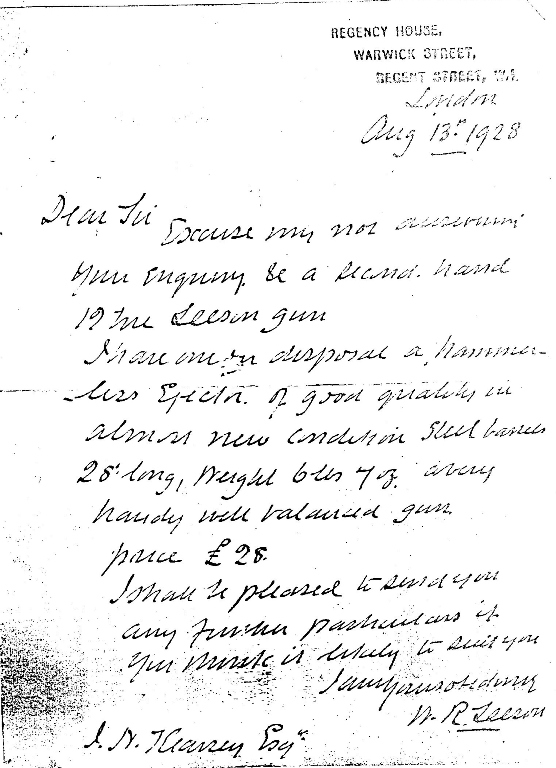 REGENCY HOUSE,
WARWICK STREET,
REGENT STREET, W.1.
London
Aug 13th 1928
Dear Sir
Excuse my not answering
your Enquiry. Re a second. hand
12 bre Leeson gun
I have one for disposal a hammer-
-less Ejector. of good quality in
almost new condition Steel barrels
28" long, Weight 6 lbs 7 oz. a very
handy well balanced gun.
price £28.
I shall be pleased to send you
any further particulars if
you think it likely to suit you
I am Yours obediently
W. R Leeson
J. N. Kearsey Esqr